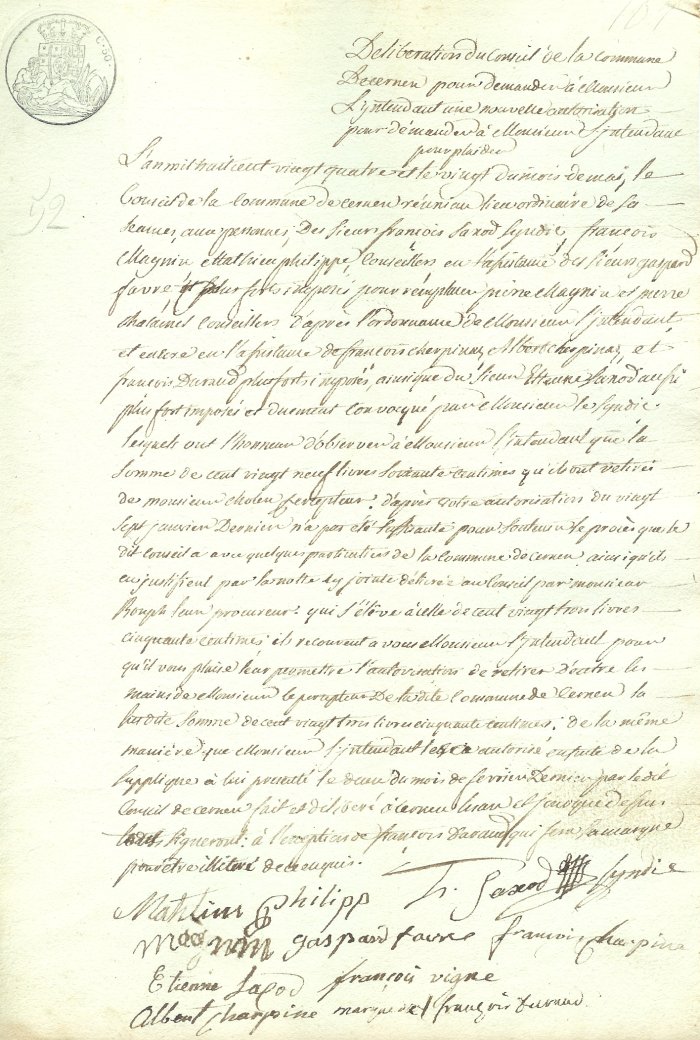 101
C. 50.
Deliberation du Conseil de la commune
De cernex pour demander à Monsieur
L'yntendant une nouvelle autorisation
pour démander à Monsieur L'yntendant
pour plaider
L'an mil huit cent vingt quatre et le vingt du mois de mai, le
52
Conseil de la Commune de cernex réuni au lieu ordinaire de ses
séances, aux personnes, Des sieurs françois Saxod syndic, françois
Magnin et Mathieu philippe, Conseillers en l'assistance des sieurs gaspard
favre, plus forts imposés, pour remplacer pierre Magnin et pierre
Conseillers d'après l'ordonnance de Monsieur l'yntendant,
et encore en l'assistance de françois cherpinaz, Albert cherpinaz, et
françois Duraud plus forts imposés, ainsique du sieur Etienne Saxod aussi
plus fort imposés et duement convoqué par Monsieur le syndic.
lesquels ont l'honneur d'observer à Monsieur l'yntendant que la
somme de cent vingt neuf livres soixante centimes qu'ils ont retirés
de monsieur percepteur. d'après votre autorisation du vingt
sept janvier Dernier n'a pas été suffisante pour soutenir le procès que le
dit Conseil a avec quelques particuliers de la Commune de cernex ainsi qu'ils
en justifient par la notte cy jointe délivrée au Conseil par monsieur
leur procureur. qui s'élève à celle de cent vingt trois livres
cinquante centimes ils recourent a vous Monsieur l'yntendant pour
qu'il vous plaise leur permettre l'autorisation de retirer d'entre les
mains de Monsieur le percepteur De la dite Commune de Cernex la
susdite somme de cent vingt trois livres cinquante centimes; de la même
manière que Monsieur l'yntendant les a autorisé ensuite de la
supplique à lui presenté le deux du mois de fevrier Dernier par le dit
Conseil de cernex fait et déliberé à cernex l'an et jour que dessus
signeront: à l'exception de françois Duraud qui fera sa marque
pour être illiteré de ce enquis.
Mathieu philipp f. Saxod syndic
Magnin gaspard favre françois Charpine
Etienne Saxod françois vigne
Albert Charpine marque de françois Duraud